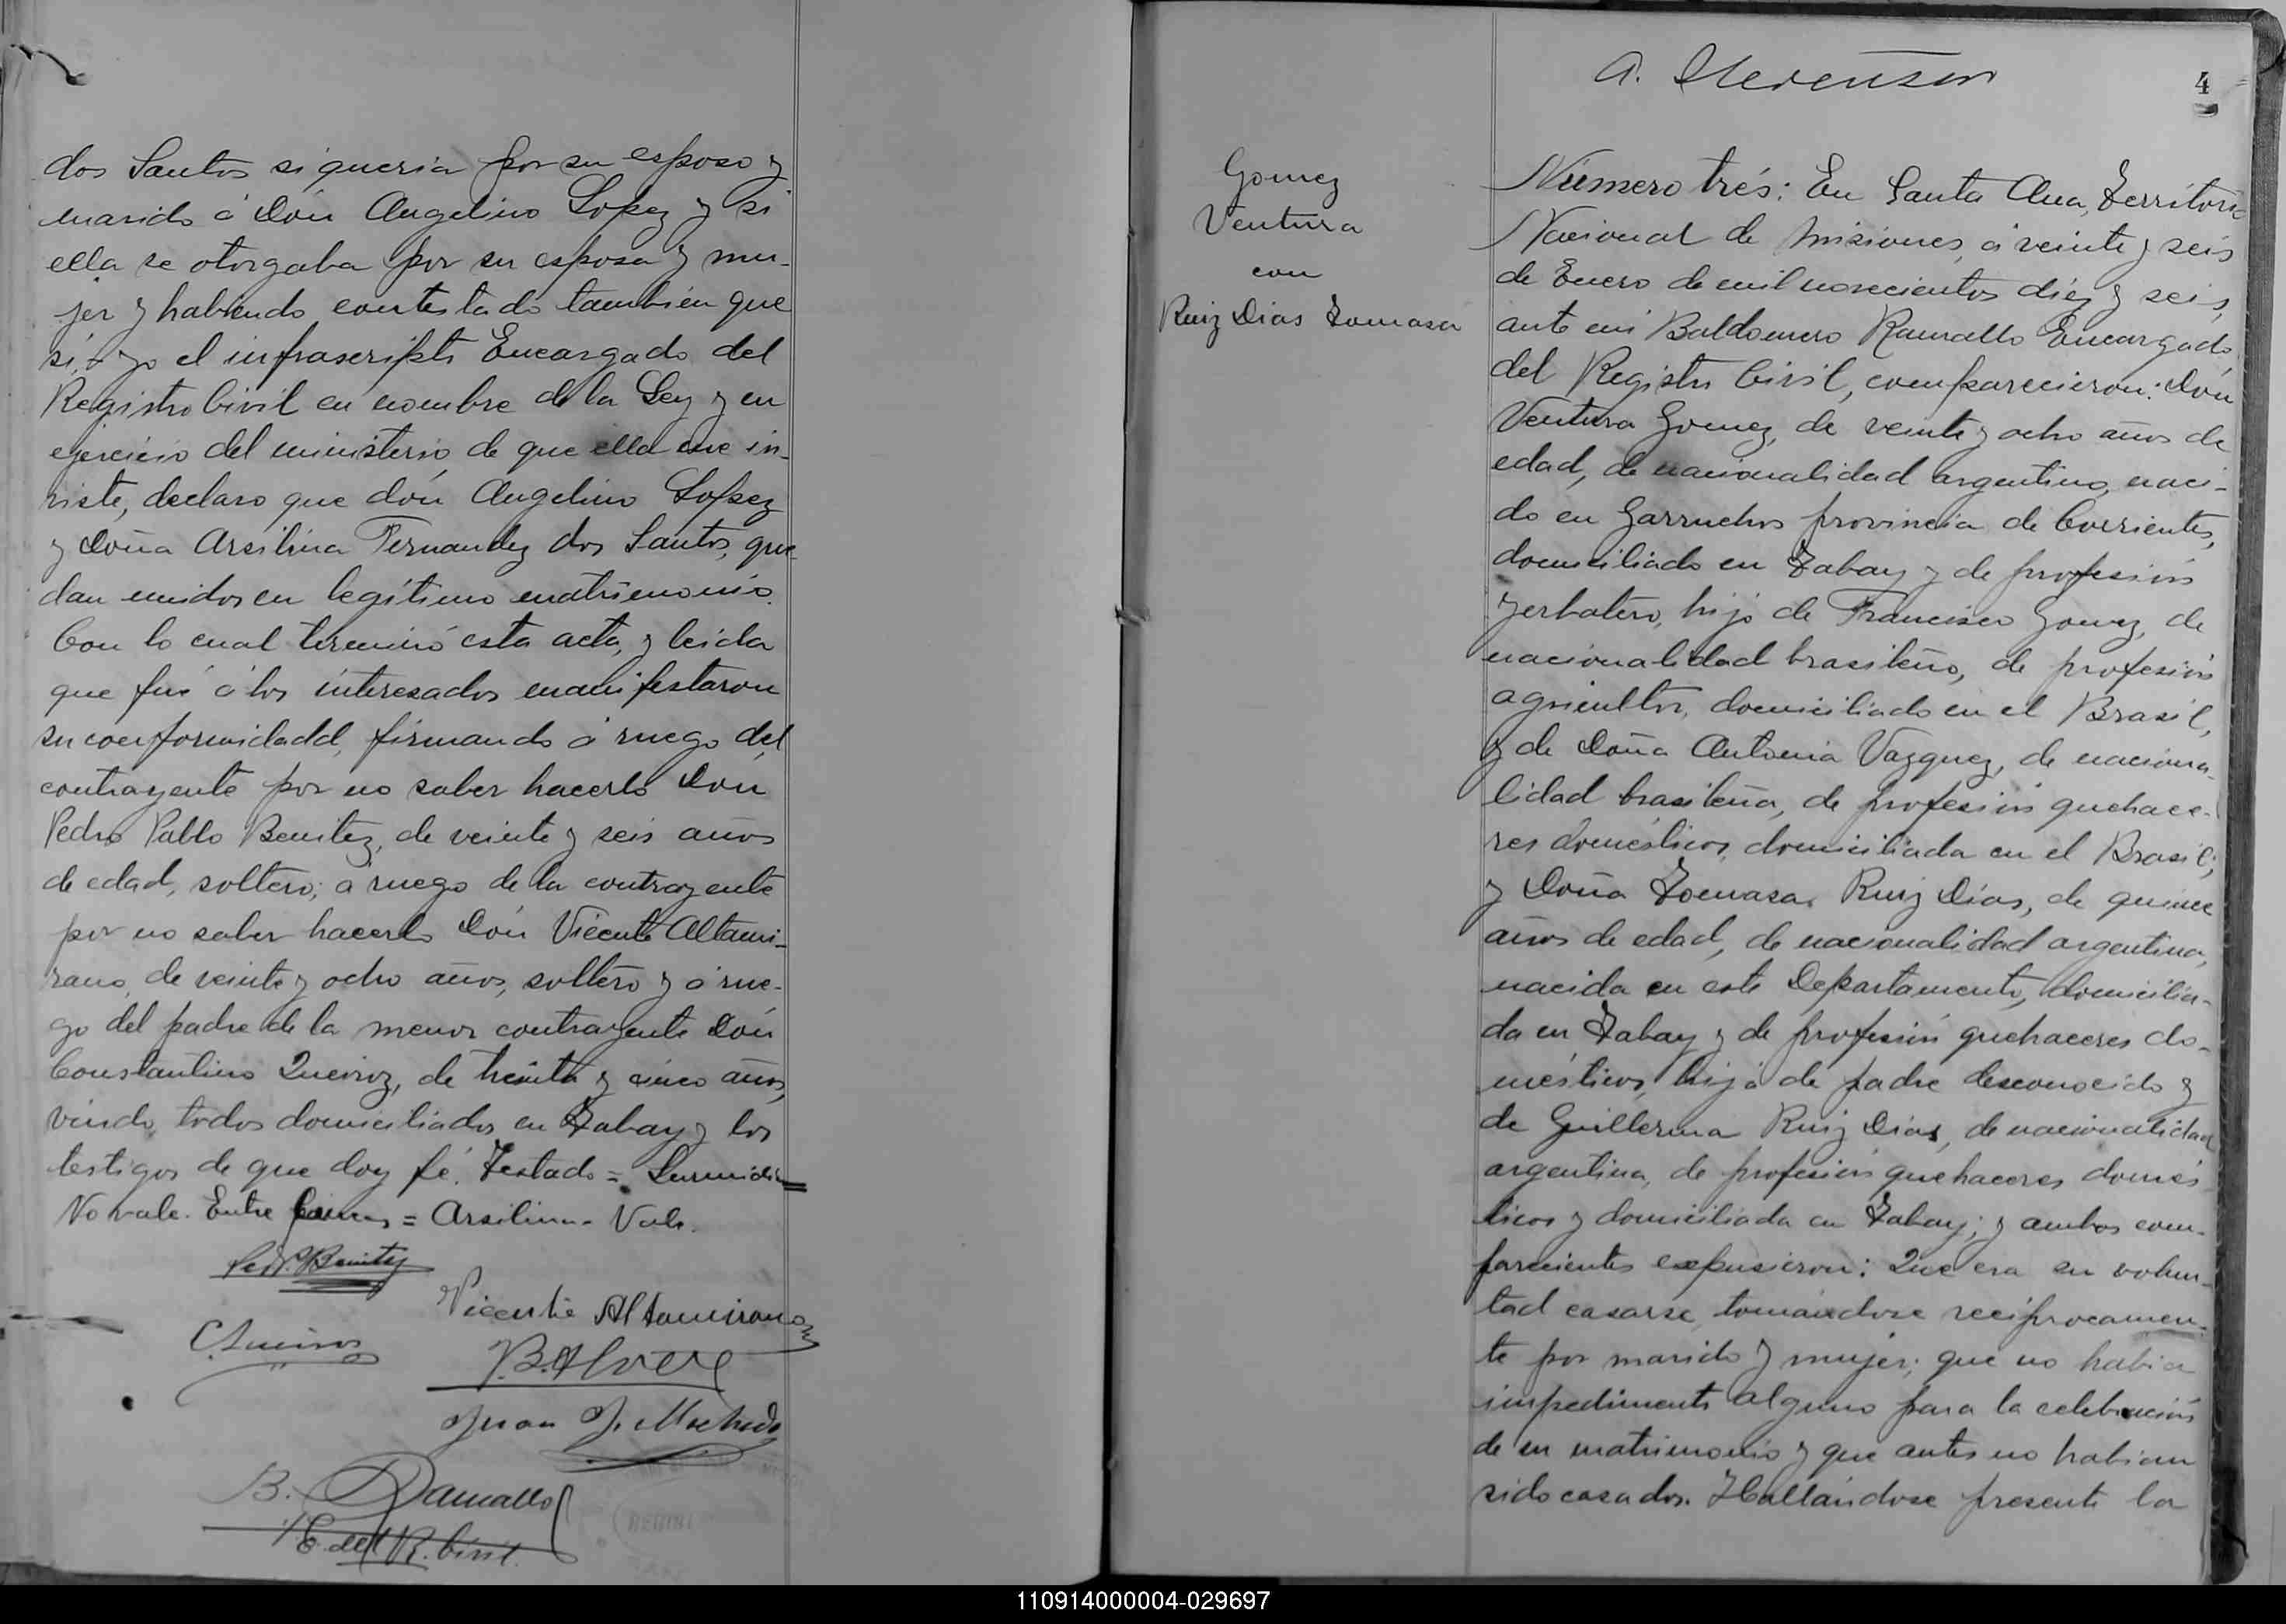 dos Santos si queria por su esposo y
marido á Dón Angelino Lopez y si
ella se otorgaba por su esposa y mu-
jer y habiendo contestado también que
sí, yo el infrascripto Encargado del
Registro Civil en nombre de la Ley y en
ejercicio del ministerio de que ella me in-
viste, declaro que dón Angelino Lopez
y Doña Arsilina Fernandez dos Santos, que-
dan unidos en legítimo matrimonio.
Con lo cual terminó esta acta, y leida
que fué á los interesados manifestaron
su conformidadd, firmando á ruego del
contrayente por no saber hacerlo Dón
Pedro Pablo Benitez, de veinte y seis años
de edad, soltero; á ruego de la contrayente
por no saber hacerlo Dón Vicente Altami-
rano, de veinte y ocho años, soltero y á rue-
go del padre de la menor contrayente Dón
Constantino Queiroz, de treinta y cinco años,
viudo, todos domiciliados en Zabay y los
testigos de que doy fé. Testado =
No vale. Entre líneas = Arsilina - Vale.
Ped. P. Benitez
Vicente Altamirano
C. Queiroz
Juan J. Machado
B. Ramallo
E. del R. Civil.
A. Stevenson
4
Gomez
Ventura
con
Ruiz Dias Tomasa
Número trés: En Santa Ana, Territorio
Nacional de Misiones, á veinte y seis
de Enero de mil novecientos diéz y seis,
ante mi Baldomero Ramallo Encargado
del Registro Civil, comparecieron: Dón
Ventura Gomez, de veinte y ocho años de
edad, de nacionalidad argentino, naci-
do en Garruchos provincia de Corrientes,
domiciliado en Zabay y de profesión
yerbatero, hijo de Francisco Gomez, de
nacionalidad brasileño, de profesión
agricultor, domiciliado en el Brasil,
y de Doña Antonia Vazquez, de naciona-
lidad brasileña, de profesión quehace-
res domésticos, domiciliada en el Brasil;
y Doña Tomasa Ruiz Dias, de quince
años de edad, de nacionalidad argentina,
nacida en este Departamento, domicilia-
da en Zabay y de profesión quehaceres do-
mésticos, hija de padre desconocido y
de Guillerma Ruiz Dias, de nacionalidad
argentina, de profesión quehaceres domés
ticos y domiciliada en Zabay; y ambos com-
parecientes expusieron: Que era su volun-
tad casarse, tomándose recíprocamen-
te por marido y mujer; que no habia
impedimento alguno para la celebración
de su matrimonio y que antes no habian
sido casados. Hallándose presente la
110914000004-029697